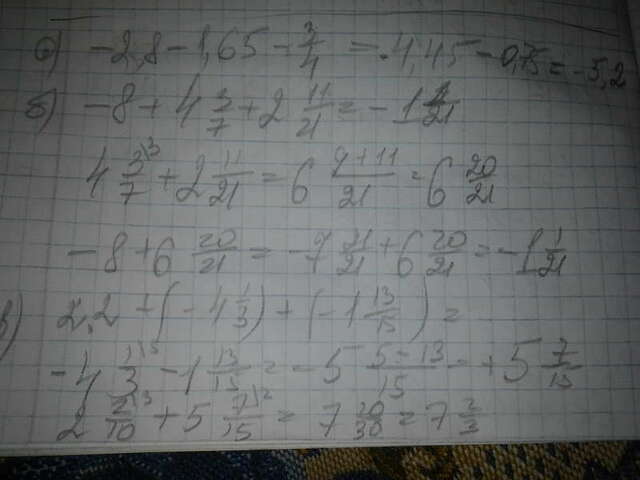 а) -2,8 - 1,65 - 3/4 = -4,45 - 0,75 = -5,2
б) -8 + 4 3/7 + 2 11/21 = -1 1/21
4 3/7\3 + 2 11/21 = 6 (9+11)/21 = 6 20/21
-8 + 6 20/21 = -7 21/21 + 6 20/21 = -1 1/21
в) 2,2 + (-4 1/3) + (-1 13/15) =
-4 1/3\5 - 1 13/15 = -5 (5-13)/15 = +5 7/15
2 2/10\3 + 5 7/15\2 = 7 20/30 = 7 2/3